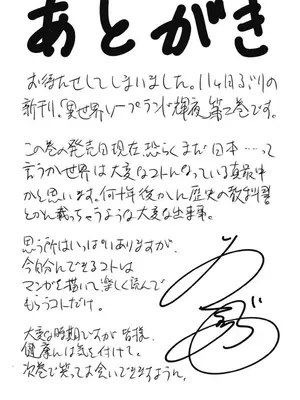 あとがき
お待たせしてしまいました。114日ぶりの
新刊「異世界ソープランド輝夜」第二巻です。
この巻の発売日現在恐らくまだ日本…って
言うか世界は大変なコトになっている真最中
かと思います。何十年後かに歴史の教科書
とかに載っちゃうような大変な出来事。
思う所はいっぱいありますが、
今自分にできるコトは
マンガを描いて楽しく読んで
もらうコトだけ。
大変な時期ですが皆様
健康には気を付けて。
次巻で笑ってお会いできますように。